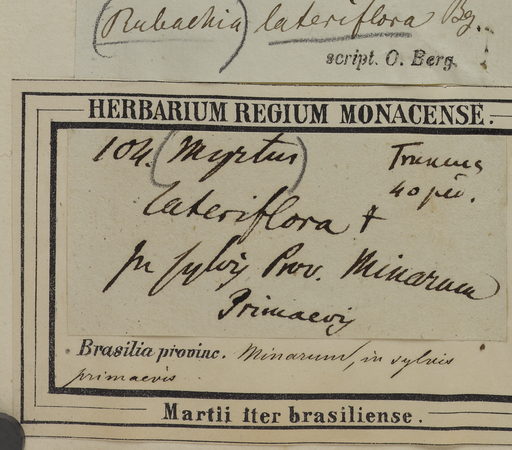 (Rubachia) lateriflora Bg.
script. O. Berg
HERBARIUM REGIUM MONACENSE.
104. (Myrtus) Truncus
40 ped.
lateriflora †
In sylvis Prov. Minarum
Primaevis
Brasilia provinc. Minarum, in sylvis
primaevis.
Martii Iter brasiliense.